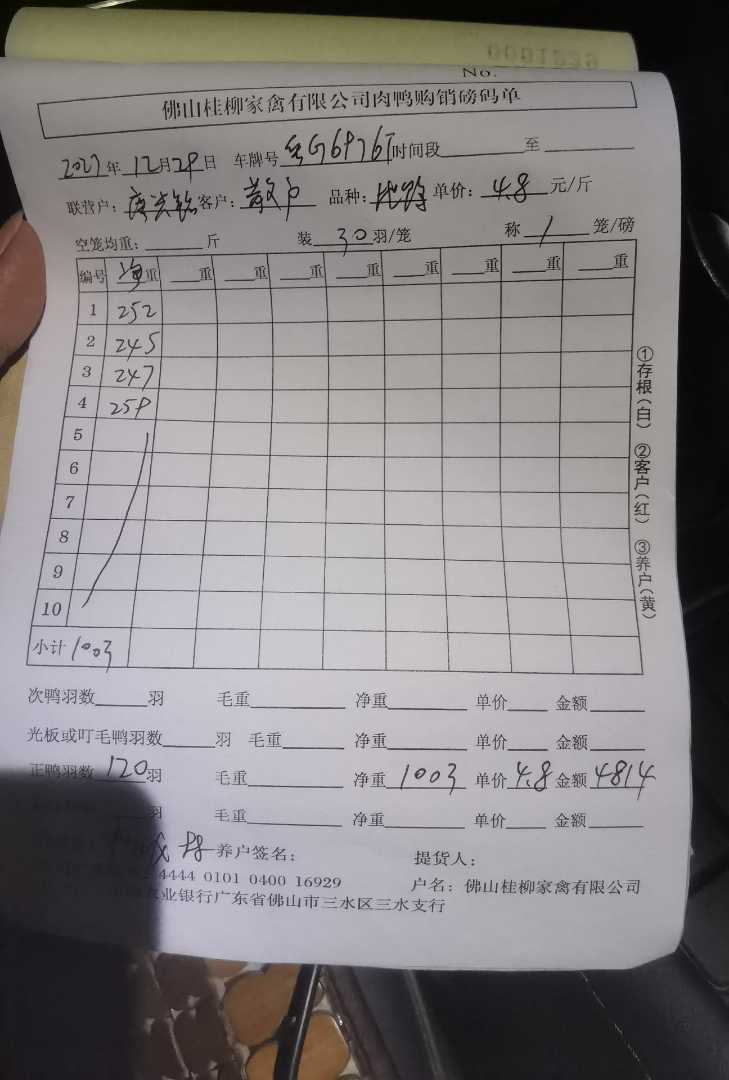 No.
佛山桂柳家禽有限公司肉鸭购销磅码单
年 12月29日 车牌号 时间段 至
联营户： 客户：散户 品种： 单价：4.8 元/斤
空笼均重： 斤 装 30 羽/笼 称 1 笼/磅
编号 重 重 重 重 重 重 重 重
1 252
2 245
3 247
4 259
5
6
7
8
9
10
小计 1003
①存根（白） ②客户（红） ③养户（黄）
次鸭羽数 羽 毛重 净重 单价 金额
光板或叮毛鸭羽数 羽 毛重 净重 单价 金额
正鸭羽数 120 羽 毛重 净重 1003 单价 4.8 金额 4814
羽 毛重 净重 单价 金额
养户签名： 提货人：
4444 0101 0400 16929 户名：佛山桂柳家禽有限公司
业银行广东省佛山市三水区三水支行